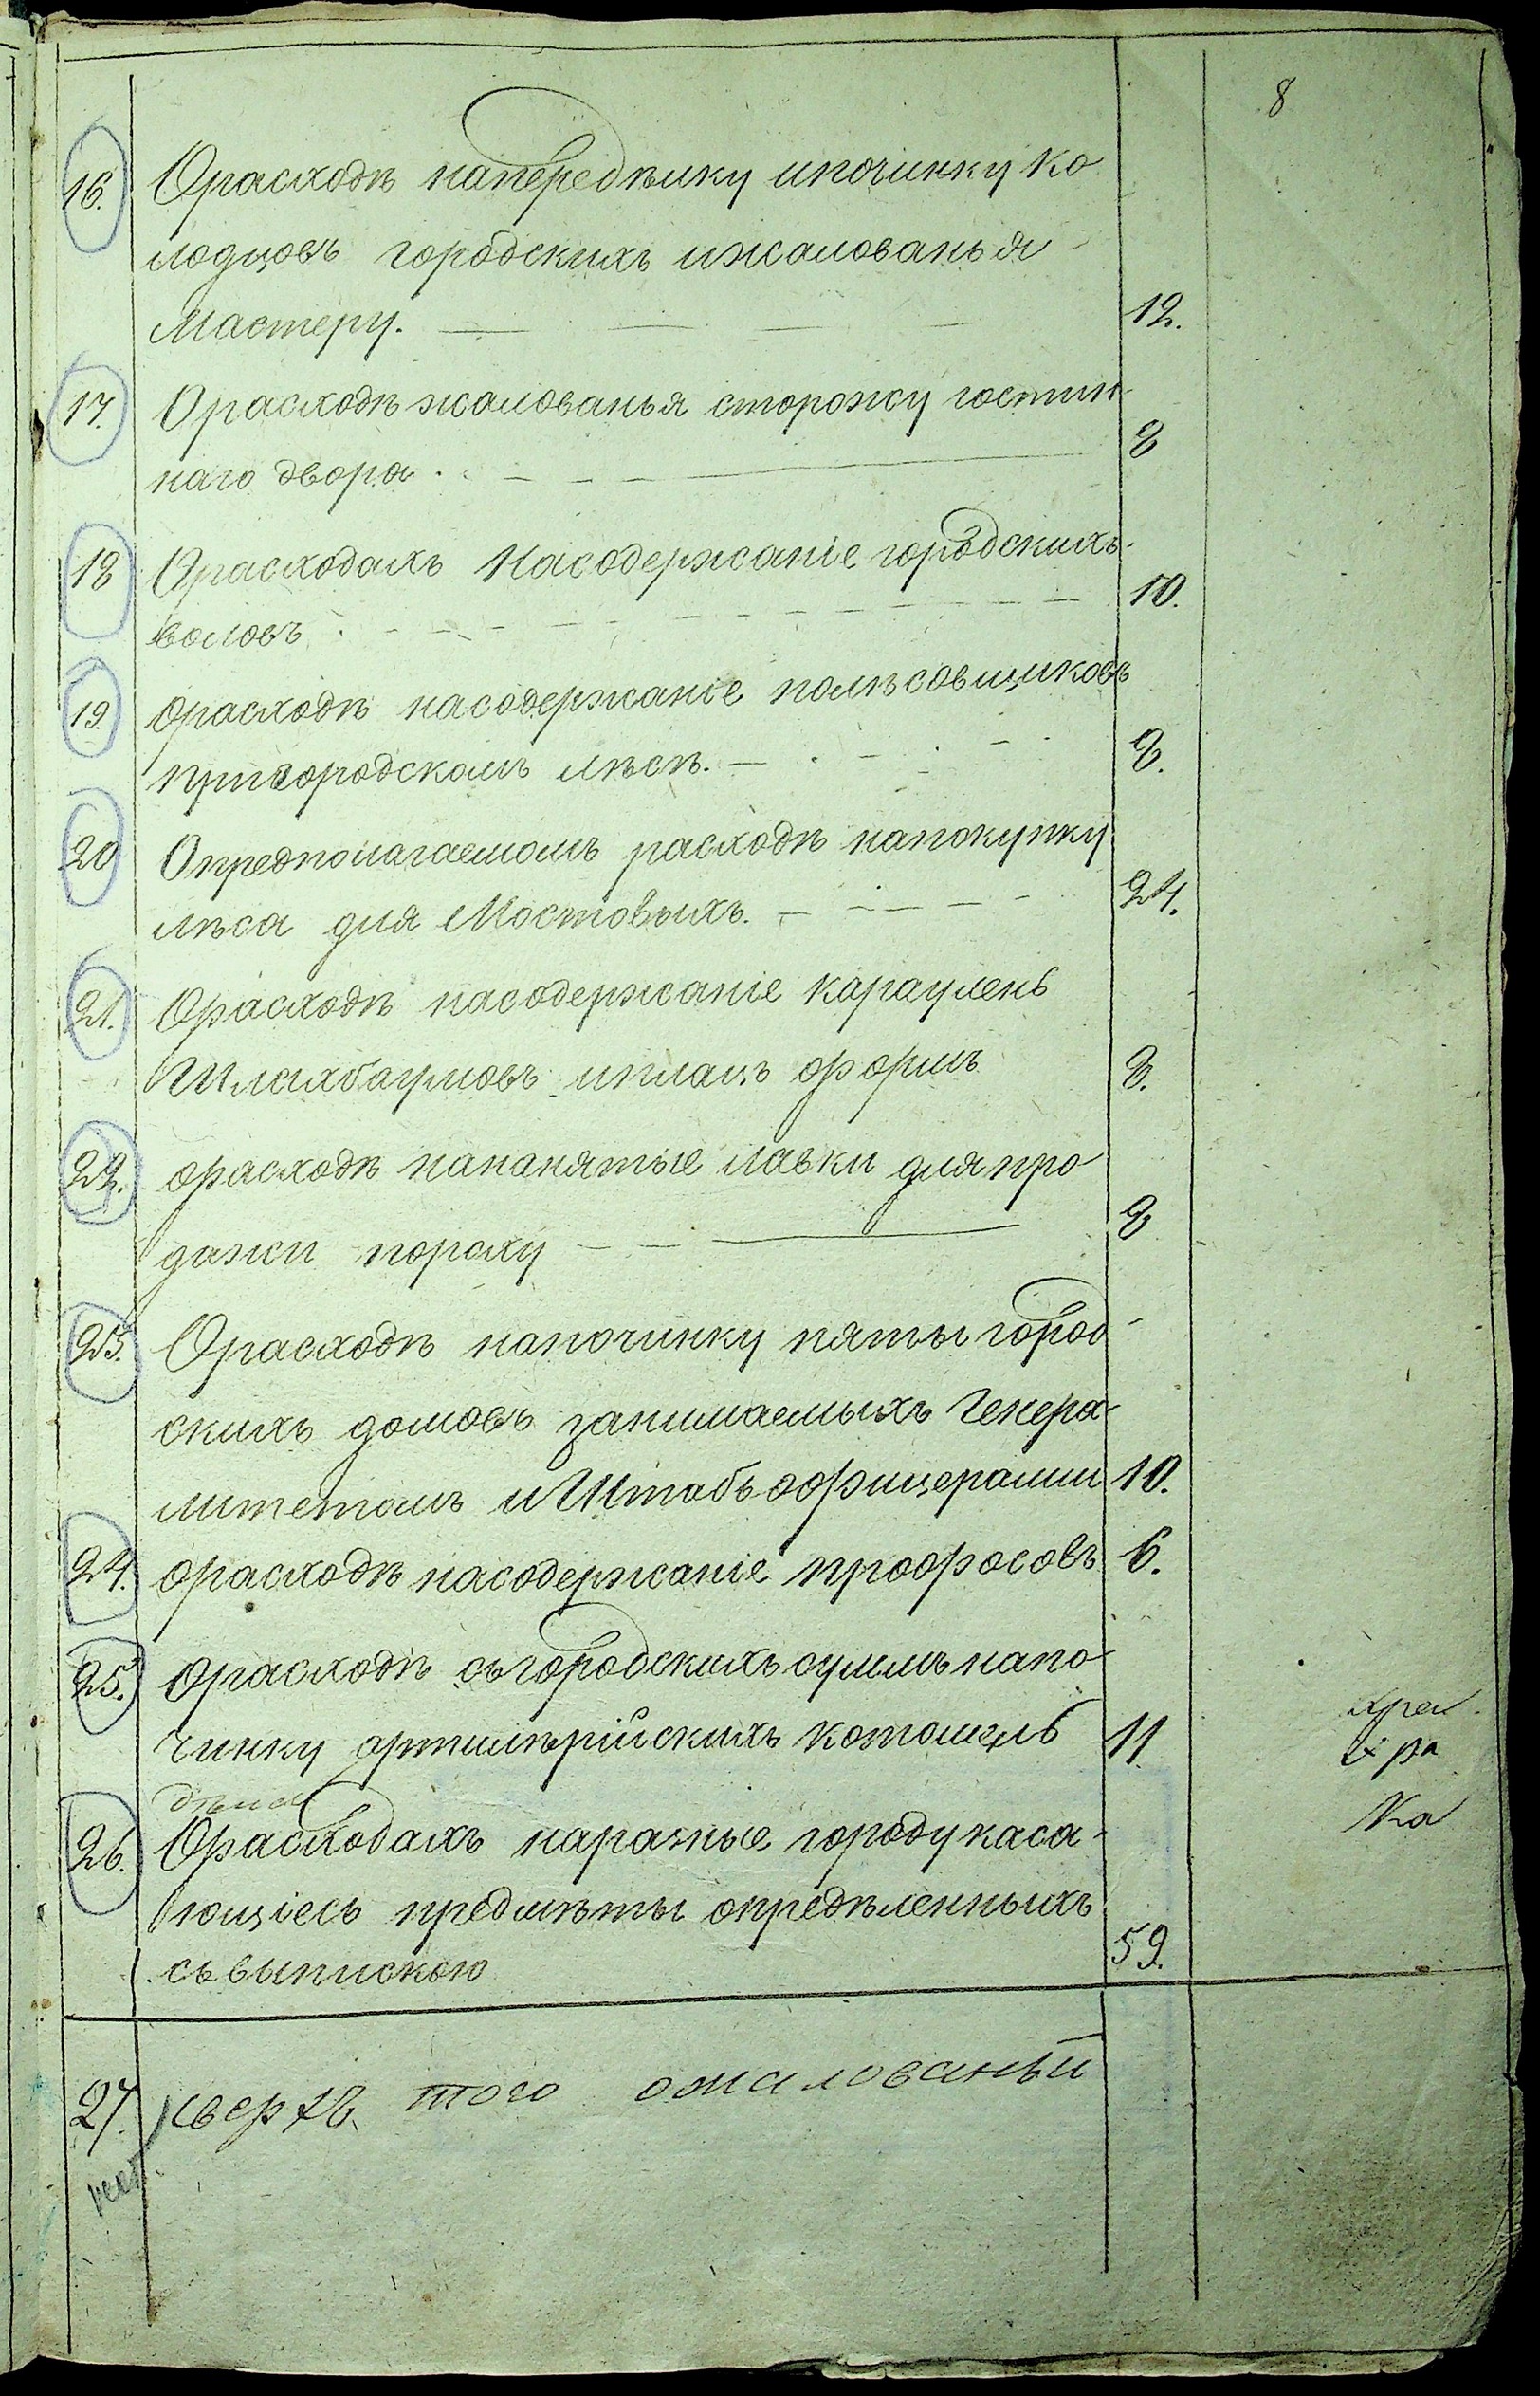 8
16. Орасходѣ напередѣлку ипочинку ко
лодцовъ городскихъ ижалованья
Мастеру. 12.
17. Орасходѣ жалованья сторожу гостин
наго двора. 8
18 Орасходахъ Насодержаніе городскихъ
воловъ 10.
19. орасходѣ насодержаніе полѣсовщиковъ
пригородскомъ лѣсѣ. 8.
20 Опредполагаемомъ расходѣ напокупку
лѣса для Мостовыхъ. 24.
21. Орасходѣ насодержаніе караулень
Шлахбаумовъ иплацъ формъ 8.
22. орасходѣ нананятые лавки дляпро
дажи пороху 8
23. Орасходѣ напочинку пяти город
скихъ домовъ занимаемыхъ Генера
литетомъ иШтабъ офицерами 10.
24. орасходѣ насодержаніе профосовъ 6.
25. Орасходѣ съгородскихъ суммъ напо
чинку артилерійскихъ 11
дѣла
26. Орасходахъ наразные городу каса
ющіесь предмѣты опредѣленныхъ
съвыпискою 59.
27. сверхъ того ожалованьи
хра
хра
Ка